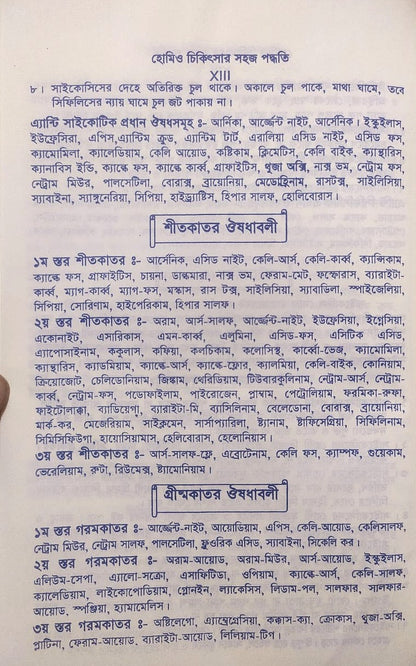 হোমিও চিকিৎসার সহজ পদ্ধতি
XIII
৮। সাইকোসিসের দেহে অতিরিক্ত চুল থাকে। অকালে চুল পাকে, মাথা ঘামে, তবে
সিফিলিসের ন্যায় ঘামে চুল জট পাকায় না।
এ্যান্টি সাইকোটিক প্রধান ঔষধসমূহ ঃ- আর্নিকা, আর্জেন্ট নাইট, আর্সেনিক। ইস্কুইলাস,
ইউফ্রেসিরা, এপিস,এ্যান্টিম ক্রুড, এ্যান্টিম টার্ট, এরালিয়া এসিড নাইট, এসিড ফস,
ক্যামোমিলা, ক্যালেডিয়াম, কেলি আয়োড, কষ্টিকাম, ক্লিমেটিস, কেলি বাইক, ক্যান্থারিস,
ক্যানাবিস ইন্ডি, ক্যাল্কে ফস, ক্যাল্কে কার্ব্ব, গ্রাফাইটিস, থুজা অক্সি, নাক্স ভম, নেট্রাম ফস,
নেট্রাম মিউর, পালসেটিলা, বোরাক্স, ব্রায়োনিয়া, মেডোহ্রিনাম, রাসটক্স, সাইলিসিয়া,
স্যাবাইনা, স্যাঙ্গুনেরিয়া, সিপিয়া, হাইড্র্যাষ্টিস, হিপার সালফ, হেলিবোরাস।
শীতকাতর ঔষধাবলী
১ম স্তর শীতকাতর ঃ- আর্সেনিক, এসিড নাইট, কেলি-আর্স, কেলি-কার্ব্ব, ক্যাপ্সিকাম,
ক্যাল্কে ফস, গ্রাফাইটিস, চায়না, ডাল্কমারা, নাক্স ভম, ফেরাম-মেট, ফস্ফোরাস, ব্যারাইটা-
কার্ব্ব, ম্যাগ-কার্ব্ব, ম্যাগ-ফস, মস্কাস, রাস টক্স, সাইলিসিয়া, স্যাবাডিলা, স্পাইজেলিয়া,
সিপিয়া, সোরিণাম, হাইপেরিকাম, হিপার সালফ।
২য় স্তর শীতকাতর ঃ- অরাম, আর্স-সালফ, আর্জ্জেন্ট-নাইট, ইউফ্রেসিয়া, ইগ্নেসিয়া,
একোনাইট, এসারিকাস, এমন-কার্ব্ব, এলুমিনা, এসিড-ফস, এসিটিক এসিড,
এ্যাপোসাইনাম, ককুলাস, কফিয়া, কলচিকাম, কলোসিন্থ, কার্ব্বো-ভেজ, ক্যামোমিলা,
ক্যান্থারিস, ক্যাডমিয়াম, ক্যাল্কে-আর্স, ক্যাল্কে-ফ্লোর, ক্যালমিয়া, কেলি-বাইক, কোনিয়াম,
ক্রিয়োজোট, চেলিডোনিয়াম, জিঙ্কাম, থেরিডিয়াম, টিউবারকুলিনাম, নেট্রাম-আর্স, নেট্রাম-
কার্ব্ব, নেট্রাম-ফস, পডোফাইলাম, পাইরোজেন, প্লাম্বাম, পেট্রোলিয়াম, ফরমিকা-রুফা,
ফাইটোলাক্কা, ব্যাডিয়েগা, ব্যারাইটা-মি, ব্যাসিলিনাম, বেলেডোনা, বোরাক্স, ব্রায়োনিয়া,
মার্ক-কর, মেজেরিয়াম, সাইক্লমেন, সার্সাপ্যারিলা, ষ্ট্যানাম, ষ্টাফিসেগ্রিয়া, সিফিলিনাম,
সিমিসিফিউগা, হায়োসিয়ামাস, হেলিবোরাস, হেলোনিয়াস।
৩য় স্তর শীতকাতর ঃ- আর্স-সালফ-ফ্লে, এব্রোটেনাম, কেলি ফস, ক্যাম্ফর, গুয়েকাম,
ভেরেলিয়াম, রুটা, রিউমেক্স, ষ্ট্র্যামোনিয়াম।
গ্রীষ্মকাতর ঔষধাবলী
১ম স্তর গরমকাতর ঃ- আর্জ্জেন্ট-নাইট, আয়োডিয়াম, এপিস, কেলি-আয়োড, কেলিসালফ,
নেট্রাম মিউর, নেট্রাম সালফ, পালসেটিলা, ফ্লুওরিক এসিড, স্যাবাইনা, সিকেলি কর।
২য় স্তর গরমকাতর ঃ- অরাম-আয়োড, অরাম-মিউর, আর্স-আয়োড, ইস্কুইলাস,
এলিউম-সেপা, এ্যালো-সক্রো, এসাফিটিডা, ওপিয়াম, ক্যাল্কে-আর্স, কেলি-সালফ,
ক্যালেডিয়াম, লাইকোপোডিয়াম, গ্লোনইন, ল্যাকেসিস, লিডাম-পল, সালফার, সালফার-
আয়োড, স্পঞ্জিয়া, হ্যামামেলিস।
৩য় স্তর গরমকাতর ঃ- অষ্টিলেগো, এ্যাম্ব্রেগ্রেসিয়া, কক্কাস-ক্যা, ক্রোকাস, থুজা-অক্সি,
প্লাটিনা, ফেরাম-আয়োড, ব্যারাইটা-আয়োড, লিলিয়াম-টিগ।